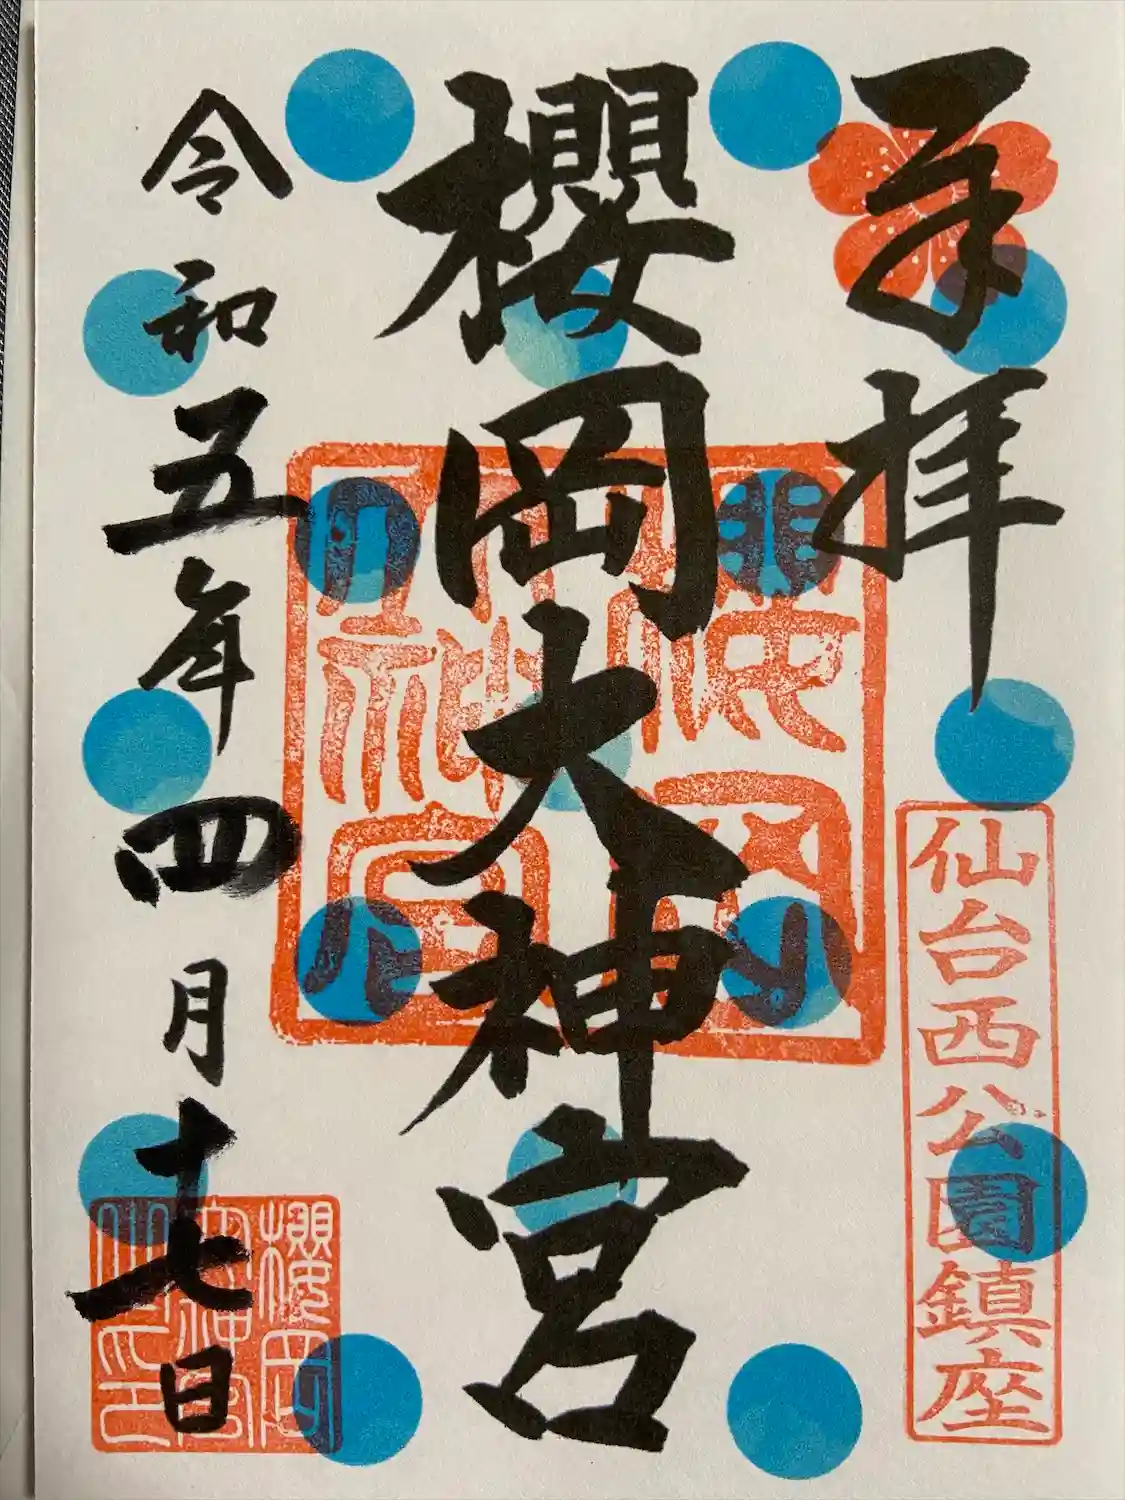 奉拝
仙台西公園鎮座
櫻岡大神宮
櫻岡大神宮
令和五年四月十七日
櫻岡
大神宮
之印